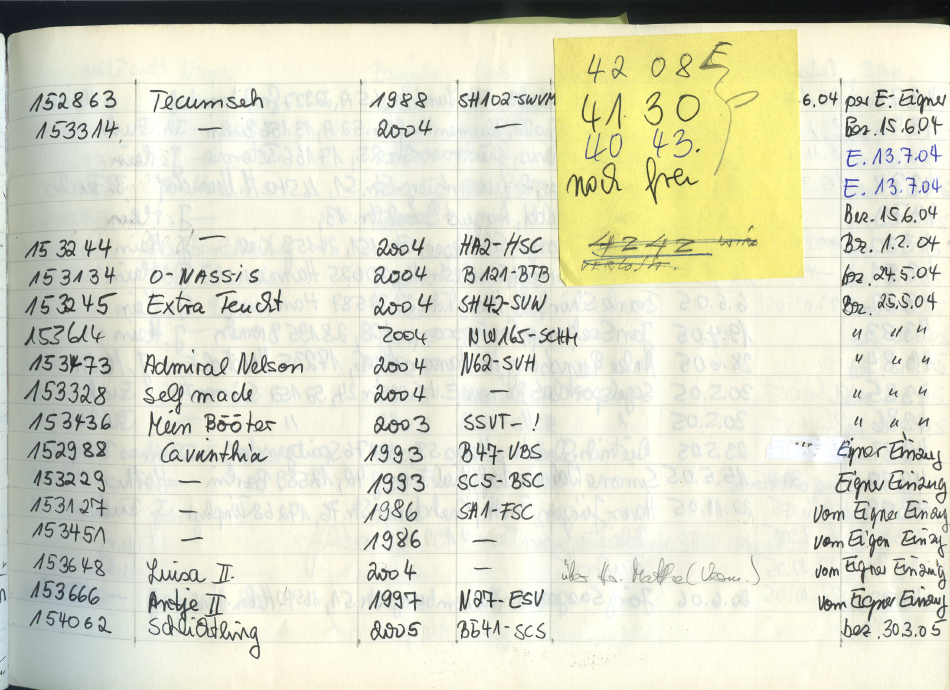 42 08 E
41 30
40 43.
noch frei
4242 wird
152863 Tecumseh 1988 SH102-SWVM 6.04 per E. Eigner
153314 — 2004 — Bez. 15.6.04
E. 13.7.04
E. 13.7.04
Bez. 15.6.04
153244 — 2004 HA2-HSC Bz. 1.2.04
153134 O-NASSiS 2004 B121-BTB bz. 24.5.04
153245 Extra Feucht 2004 SH42-SVW Bz. 25.5.04
153614 2004 NW165-SCHH " " "
153473 Admiral Nelson 2004 N62-SVH " " "
153328 Selfmade 2004 — " " "
153436 Mein Bööter 2003 SSVT-! " " "
152988 Carinthia 1993 B47-VBS Eigner Einzug
153229 — 1993 SC5-BSC Eigner Einzug
153127 — 1986 SH1-FSC vom Eigner Einzug
153451 — 1986 — vom Eigen Einzug
153648 Luisa II. 2004 — über Hr. vom Eigner Einzug
153666 Antje II 1997 N27-ESV vom Eigner Einzug
154062 2005 BE41-SCS bez. 30.3.05